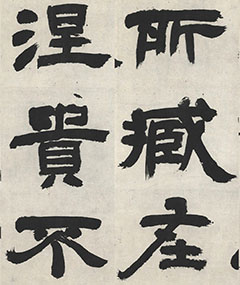 所臧在
涅貴不